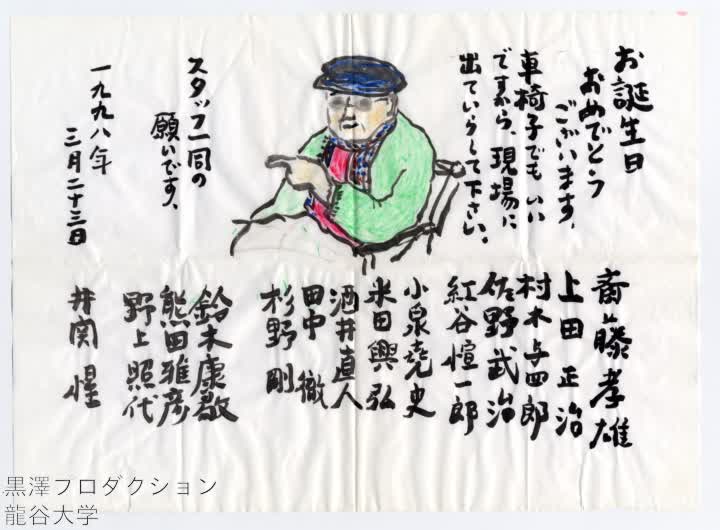 お誕生日
おめでとう
ございます。
車椅子でもいい
ですから、現場に
出ていらして下さい。
スタッフ一同の
願いです、
一九九八年
三月二十三日
斎藤孝雄
上田正治
村木与四郎
佐野武治
紅谷愃一郎
小泉堯史
米田興弘
酒井直人
田中徹
杉野剛
鈴木康敬
熊田雅彦
野上照代
井関惺
黒澤プロダクション
龍谷大学